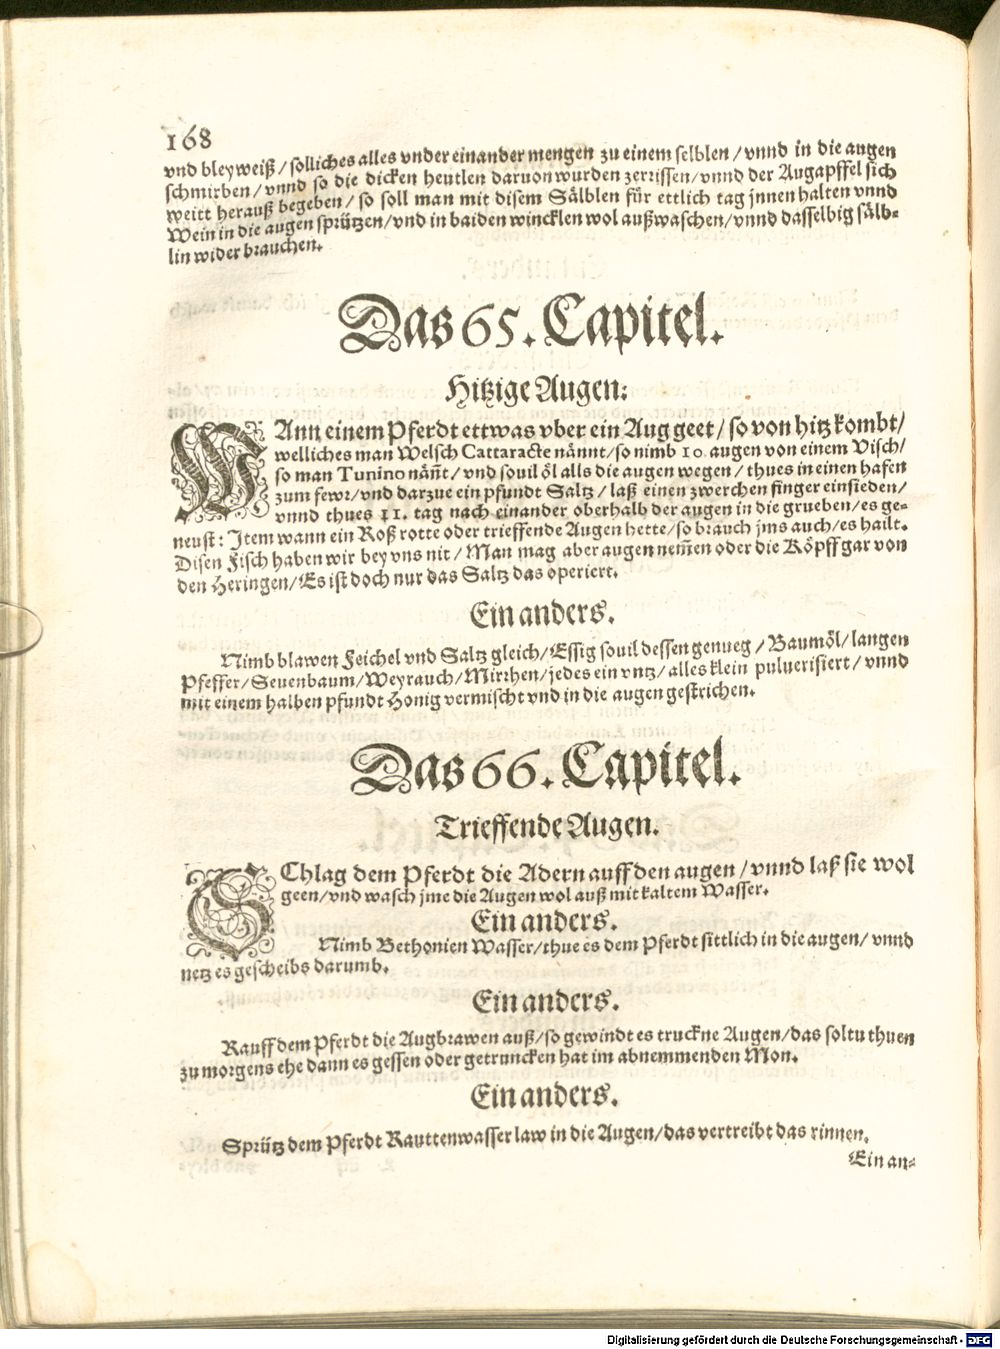 168
vnd bleyweiß / solliches alles vnder einander mengen zu einem selblen / vnnd in die augen
schmirben / vnnd so die dicken heutlen daruon wurden zerrissen / vnnd der Augapffel sich
weitt herauß begeben / so soll man mit disem Sälblen für ettlich tag jnnen halten vnnd
Wein in die augen sprützen / vnd in baiden wincklen wol außwaschen / vnnd dasselbig sälb-
lin wider brauchen.
Das 65. Capitel.
Hitzige Augen:
WAnn einem Pferdt ettwas vber ein Aug geet / so von hitz kombt /
welliches man Welsch Cattaracte nännt / so nimb 10 augen von einem Visch /
so man Tunino nän̄t / vnd souil öl alls die augen wegen / thues in einen hafen
zum fewr / vnd darzue ein pfundt Saltz / laß einen zwerchen finger einsieden /
vnnd thues 11. tag nach einander oberhalb der augen in die grueben / es ge-
neust: Jtem wann ein Roß rotte oder trieffende Augen hette / so brauch jms auch / es hailt.
Disen Fisch haben wir bey vns nit / Man mag aber augen nem̄en oder die Köpff gar von
den Heringen / Es ist doch nur das Saltz das operiert.
Ein anders.
Nimb blawen Feichel vnd Saltz gleich / Essig souil dessen genueg / Baumöl / langen
Pfeffer / Seuenbaum / Weyrauch / Mirrhen / jedes ein vntz / alles klein puluerisiert / vnnd
mit einem halben pfundt Honig vermischt vnd in die augen gestrichen.
Das 66. Capitel.
Trieffende Augen.
SChlag dem Pferdt die Adern auff den augen / vnnd laß sie wol
geen / vnd wasch jme die Augen wol auß mit kaltem Wasser.
Ein anders.
Nimb Bethonien Wasser / thue es dem Pferdt sittlich in die augen / vnnd
netz es gescheibs darumb.
Ein anders.
Rauff dem Pferdt die Augbrawen auß / so gewindt es truckne Augen / das soltu thuen
zu morgens ehe dann es gessen oder getruncken hat im abnemmenden Mon.
Ein anders.
Sprütz dem Pferdt Rauttenwasser law in die Augen / das vertreibt das rinnen.
Ein an-
Digitalisierung gefördert durch die Deutsche Forschungsgemeinschaft - DFG